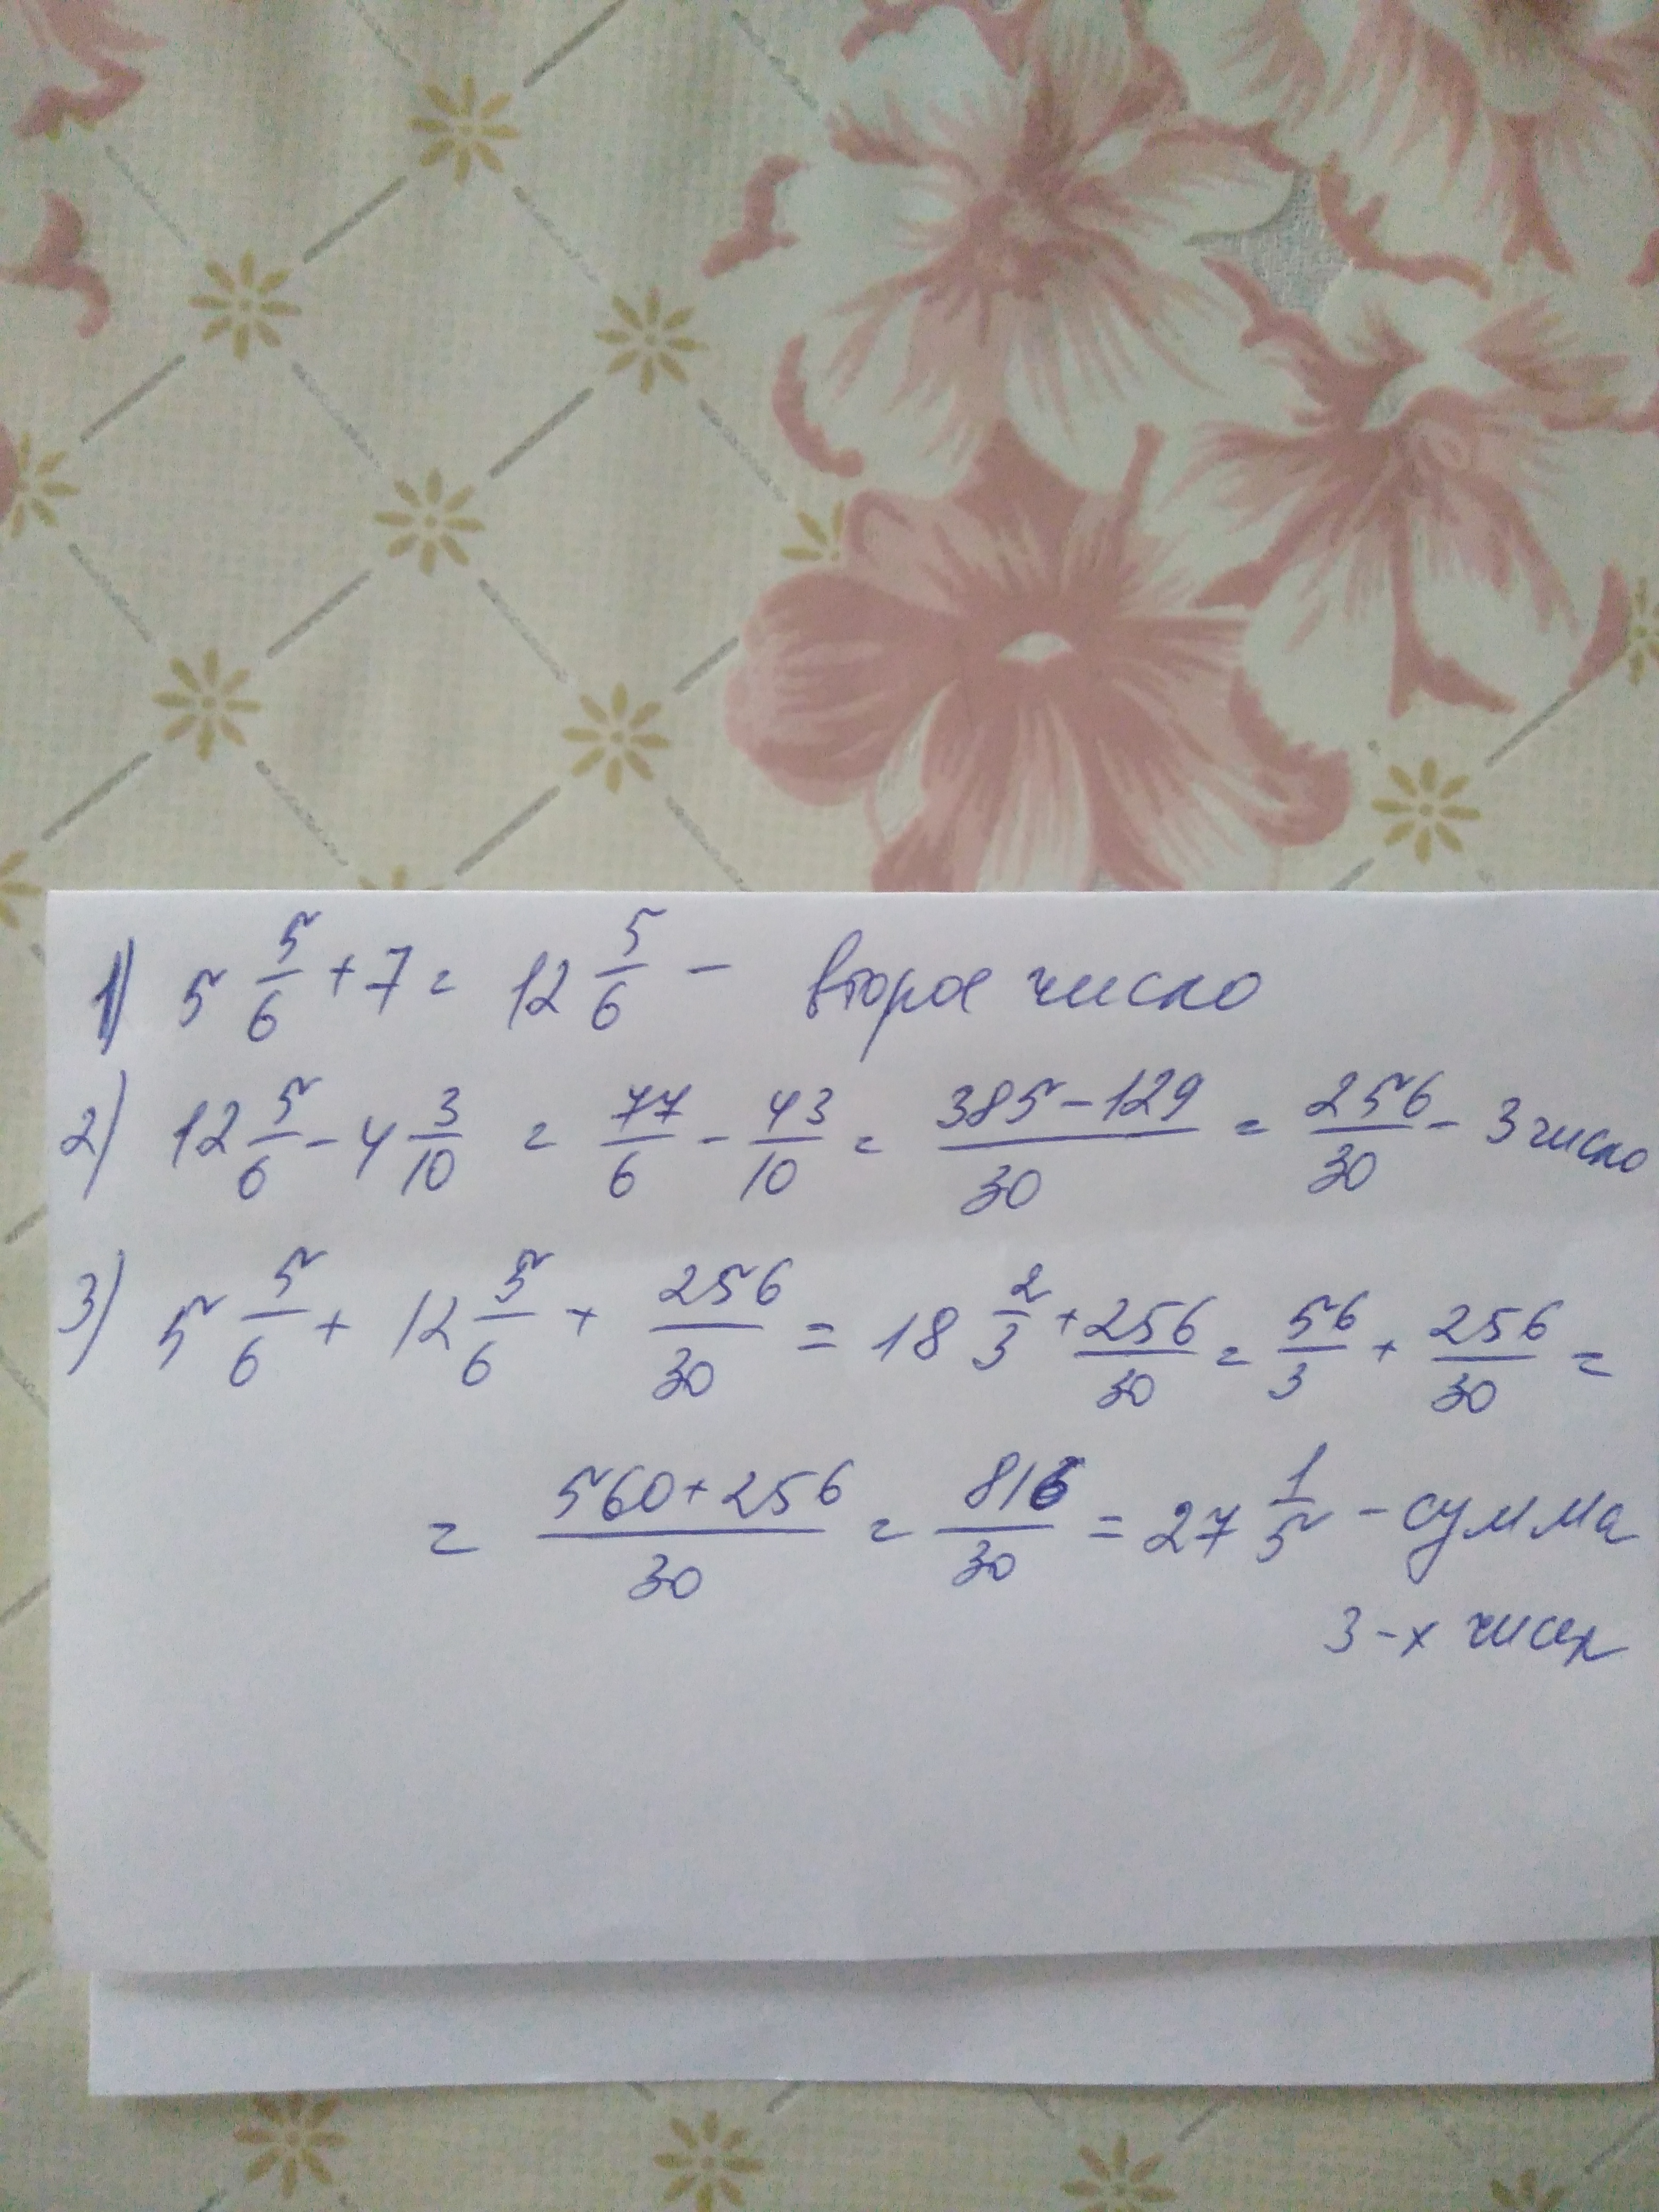 1) 5 5/6 + 7 = 12 5/6 - второе число
2) 12 5/6 - 4 3/10 = 77/6 - 43/10 = (385-129)/30 = 256/30 - 3 число
3) 5 5/6 + 12 5/6 + 256/30 = 18 2/3 + 256/30 = 56/3 + 256/30 =
= (560+256)/30 = 816/30 = 27 1/5 - сумма
3-х чисел